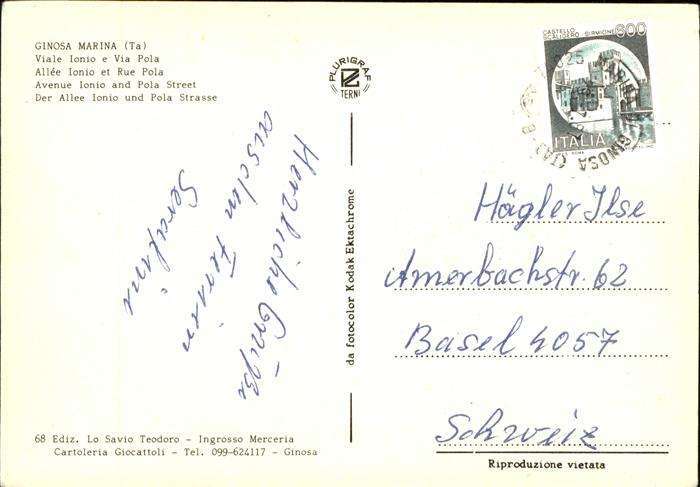 GINOSA MARINA (Ta)
Viale Ionio e Via Pola
Allée Ionio et Rue Pola
Avenue Ionio and Pola Street
Der Allee Ionio und Pola Strasse
PLURIGRAF
TERNI
CASTELLO
SCALIGERO SIRMIONE 600
ITALIA
GINOSA (TA)
Herzliche Grüße
aus den Ferien
Serafina
da fotocolor Kodak Ektachrome
Hägler Ilse
Amerbachstr. 62
Basel 4057
Schweiz
68 Ediz. Lo Savio Teodoro - Ingrosso Merceria
Cartoleria Giocattoli - Tel. 099-624117 - Ginosa
Riproduzione vietata